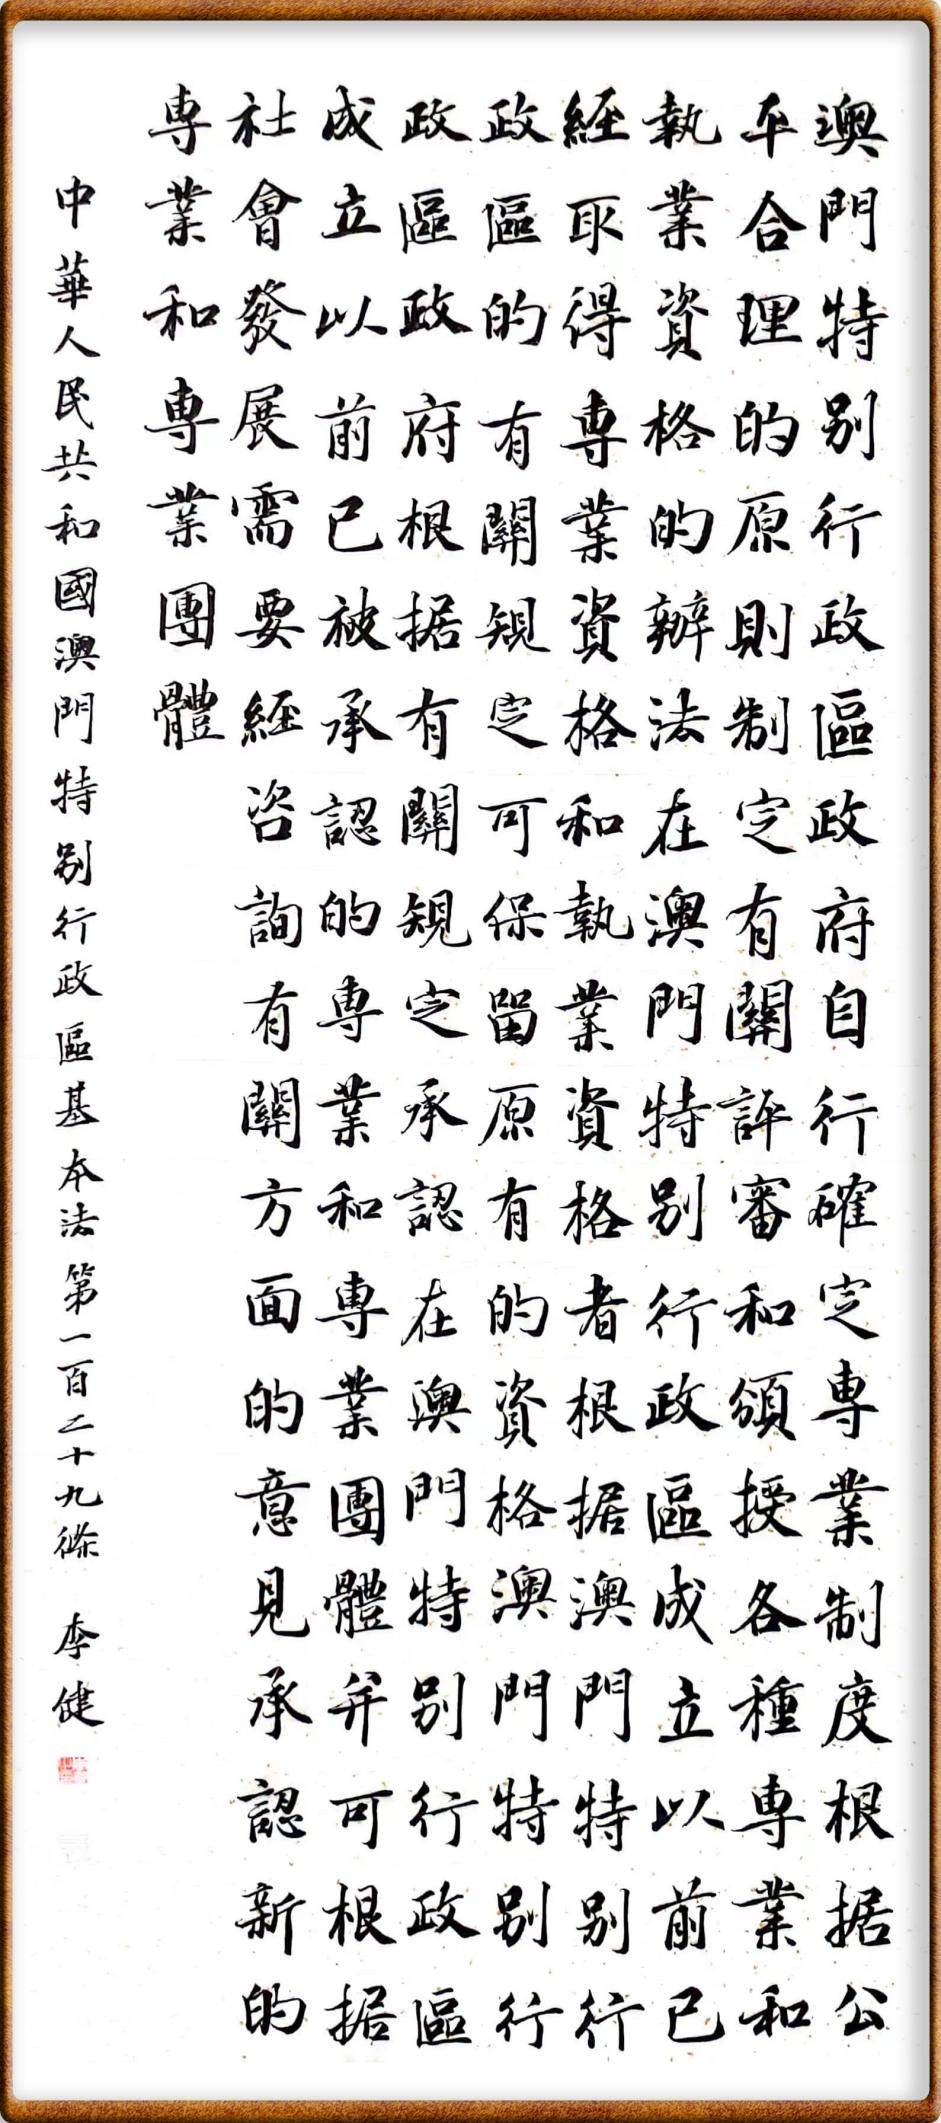 澳門特别行政區政府自行確定專業制度根据公
平合理的原則制定有關評審和頒授各種專業和
執業資格的辦法在澳門特别行政區成立以前已
經取得專業資格和執業資格者根据澳門特别行
政區的有關規定可保留原有的資格澳門特别行
政區政府根据有關規定承認在澳門特别行政區
成立以前已被承認的專業和專業團體并可根据
社會發展需要經咨詢有關方面的意見承認新的
專業和專業團體
中華人民共和國澳門特别行政區基本法第一百二十九條 李健